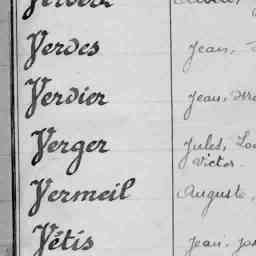 Verdes Jean,
Verdier Jean,
Verger Jules,
Victor.
Vermeil Auguste,
Vétis Jean